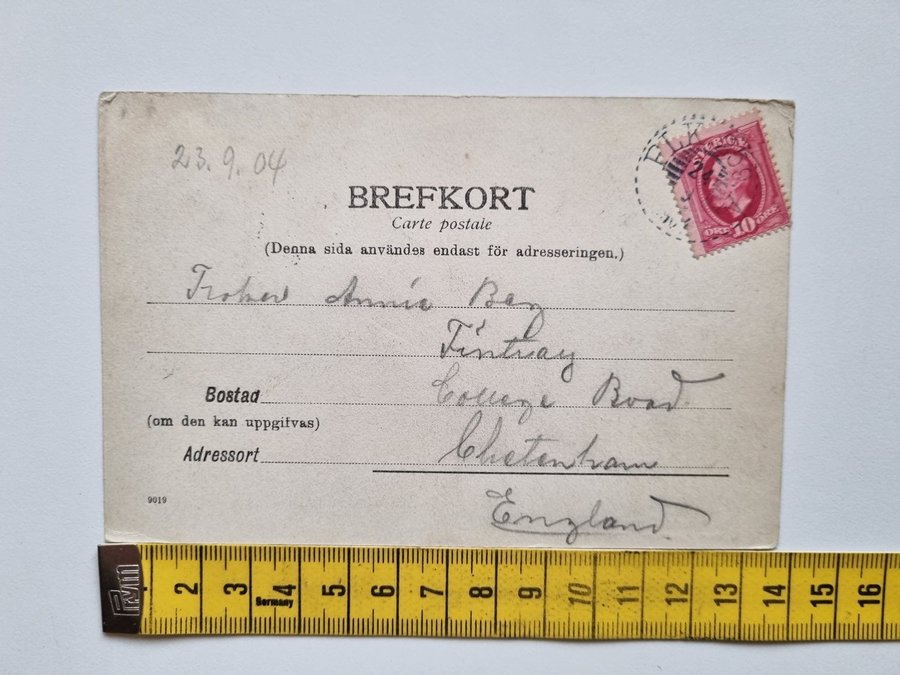 23.9.04
BREFKORT
Carte postale
(Denna sida användes endast för adresseringen.)
SVERIGE
ÖRE 10 ÖRE
Annie
College Road
Bostad
(om den kan uppgifvas)
Adressort
England
9019
prym 2 3 4 5 6 7 8 9 10 11 12 13 14 15 16
Germany